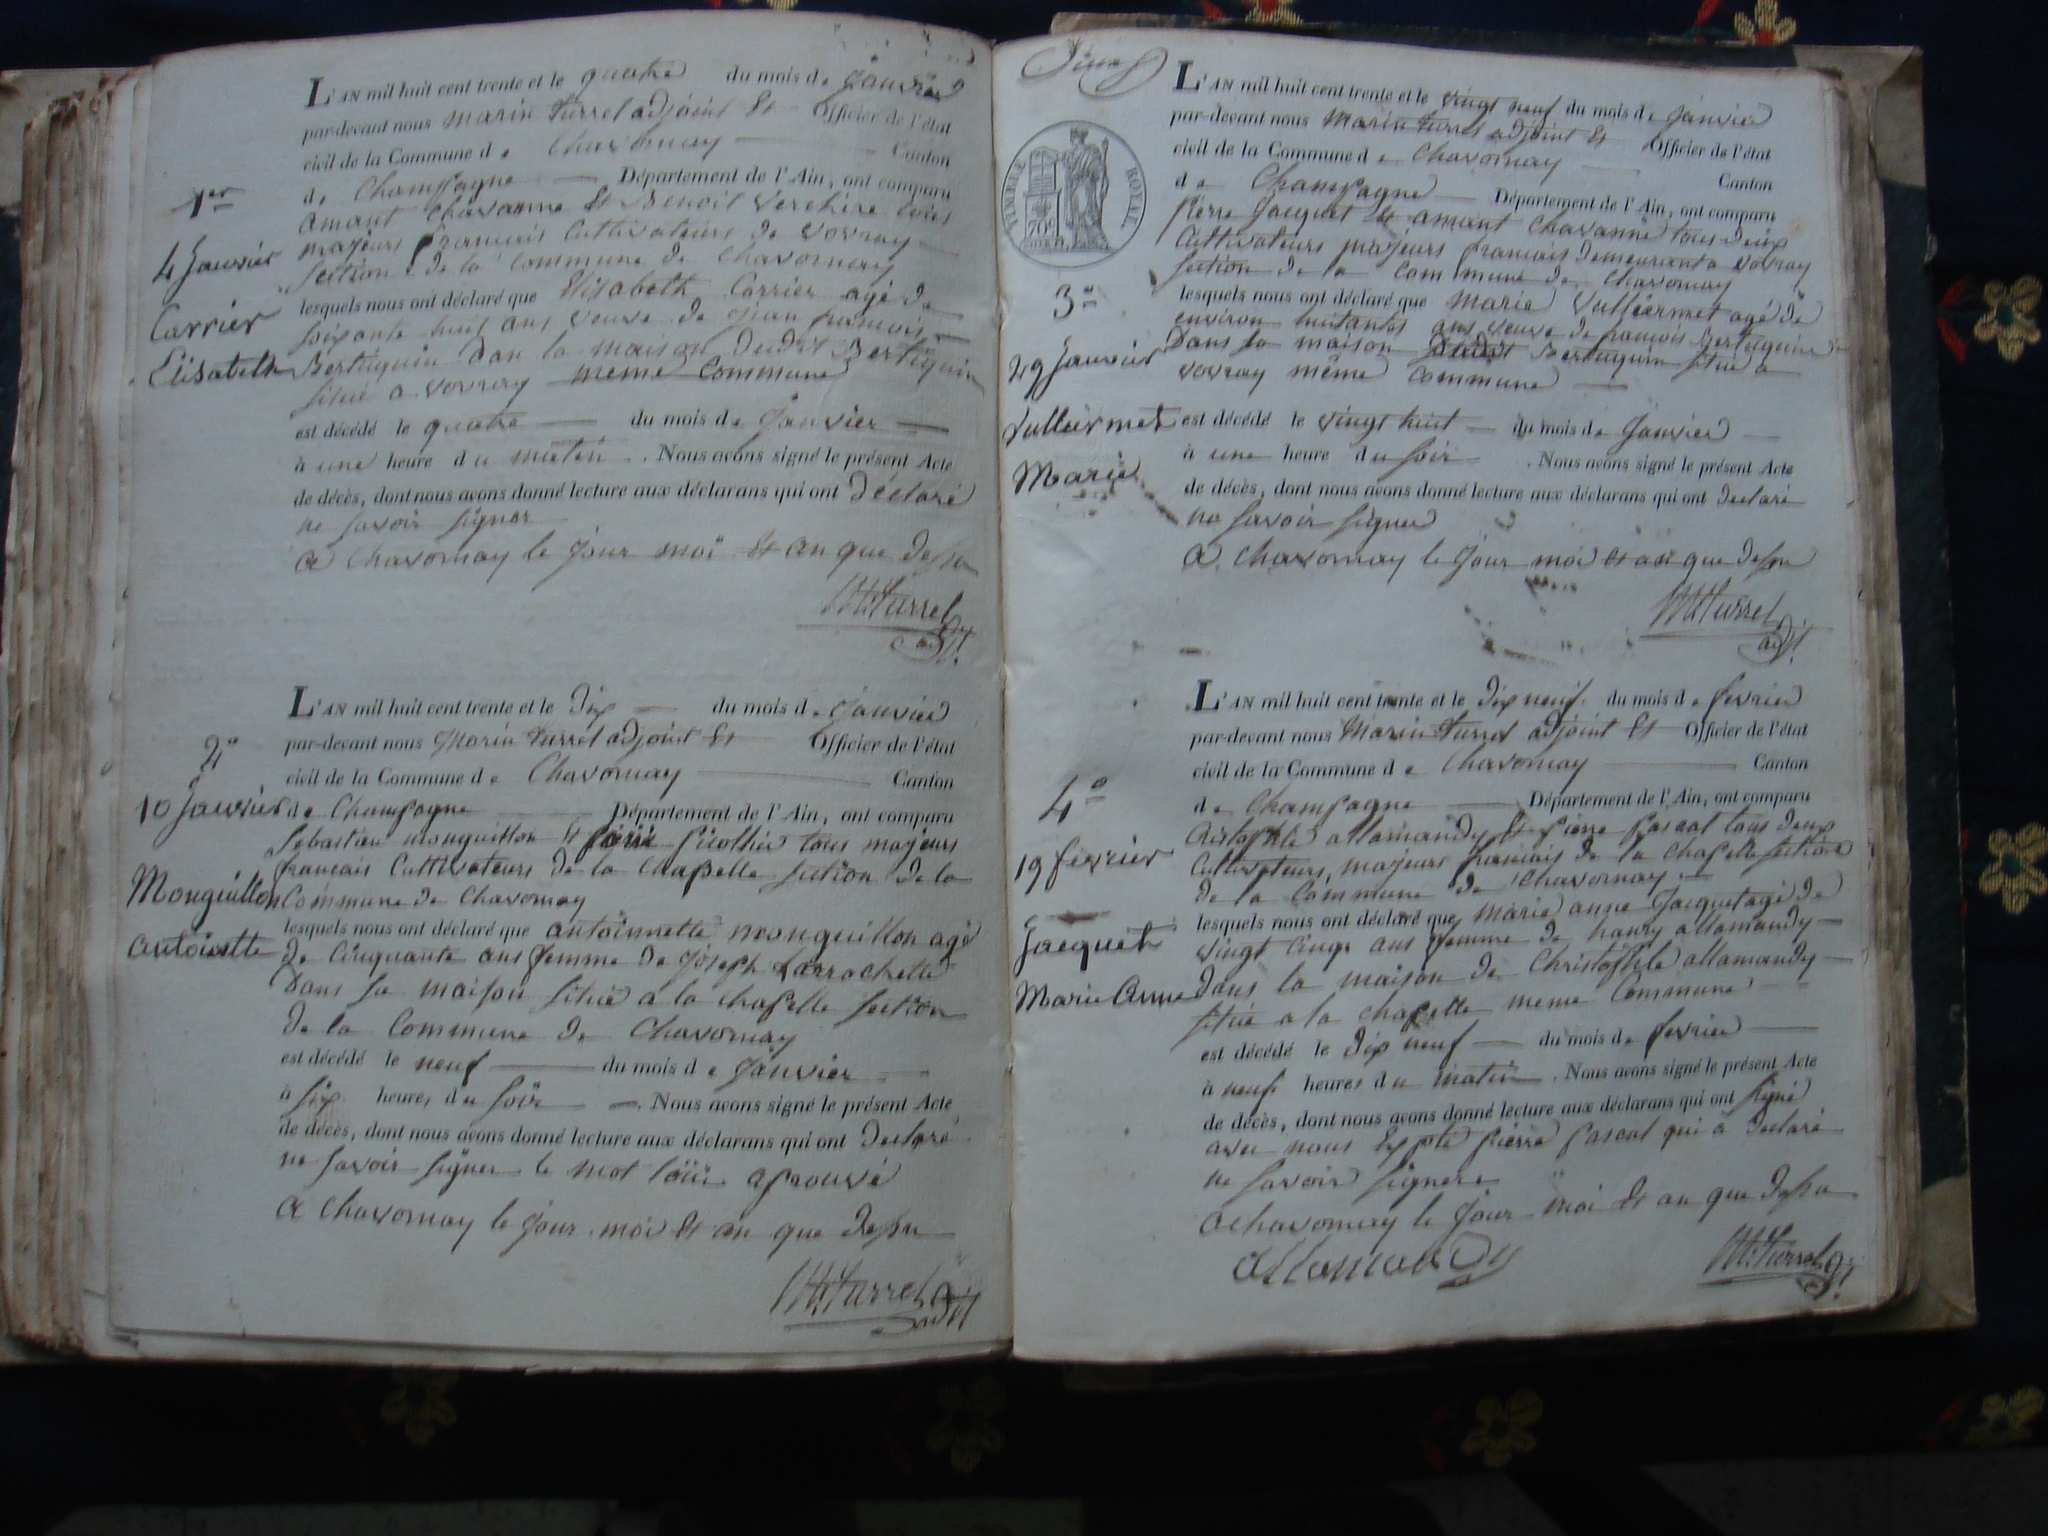 L'AN mil huit cent trente et le quatre du mois de janvier
par-devant nous marin turrel adjoint Et Officier de l'état
civil de la Commune de Chavornay Canton
de Champagne Département de l'Ain, ont comparu
amant Chavanne Et Benoit Verchère tous
majeurs français Cultivateurs de vovray
section de la commune de Chavornay
lesquels nous ont déclaré que Elisabeth Carrier agé de
soixante huit ans veuve de jean francois
Bertuquin dan la maison dudit Bertuquin
situé a vovray meme Commune
est décédé le quatre du mois de janvier
à une heure du matin. Nous avons signé le présent Acte
de décès, dont nous avons donné lecture aux déclarans qui ont déclaré
ne savoir signer
a Chavornay le jour moi Et an que dessu
M. Turrel
adjt.
1er
4 Janvier
Carrier
Elisabeth
L'AN mil huit cent trente et le dix du mois de janvier
par-devant nous Marin turrel adjoint Et Officier de l'état
civil de la Commune de Chavornay Canton
de Champagne Département de l'Ain, ont comparu
Sebastien monguillon Et picollier tous majeurs
français Cultivateurs de la Chapelle section de la
Commune de Chavornay
lesquels nous ont déclaré que antoinnette monguillon agé
de Cinquante ans femme de joseph Larrochette
Dans sa maison situé a la chapelle section
de la Commune de Chavornay
est décédé le neuf du mois de janvier
à six heures du soir. Nous avons signé le présent Acte
de décès, dont nous avons donné lecture aux déclarans qui ont declaré
ne savoir signer le mot aprouvé
a Chavornay le jour moi Et an que dessu
M. Turrel
adjt
2e
10 Janvier
Monguillon
antoinette
L'AN mil huit cent trente et le vingt neuf du mois de janvier
par-devant nous Marin turrel adjoint Et Officier de l'état
civil de la Commune de Chavornay Canton
de Champagne Département de l'Ain, ont comparu
Pierre Jacquet Et amant Chavanne tous deux
Cultivateurs majeurs francais demeurant a vovray
section de la Commune de Chavornay
lesquels nous ont déclaré que marie Vulliermet agé de
environ huitante ans veuve de francois Bertuquin
Dans sa maison dudit Bertuquin situé a
vovray même Commune
est décédé le vingt huit du mois de janvier
à une heure du soir. Nous avons signé le présent Acte
de décès, dont nous avons donné lecture aux déclarans qui ont declaré
ne savoir signer
a Chavornay le jour moi Et an que dessu
M. Turrel
adjt.
TIMBRE ROYAL
70c
3e
29 Janvier
Vulliermet
Marie
L'AN mil huit cent trente et le dix neuf du mois de fevrier
par-devant nous Marin turrel adjoint Et Officier de l'état
civil de la Commune de Chavornay Canton
de Champagne Département de l'Ain, ont comparu
Cristophle allamandy Et pierre pascal tous deux
Cultivateurs, majeurs français de la chapelle section
de la Commune de Chavornay
lesquels nous ont déclaré que marie anne Jacquet agé de
vingt cinq ans femme de hanry allamandy
dans la maison de Christophle allamandy
situé a la chapelle meme Commune
est décédé le dix neuf du mois de fevrier
à neuf heures du matin. Nous avons signé le présent Acte
de décès, dont nous avons donné lecture aux déclarans qui ont signé
avec nous Exepté pierre pascal qui a declaré
ne savoir signere
a chavornay le jour moi Et an que dessu
allamandy
M. Turrel adjt.
4e
19 fevrier
Jacquet
Marie Anne